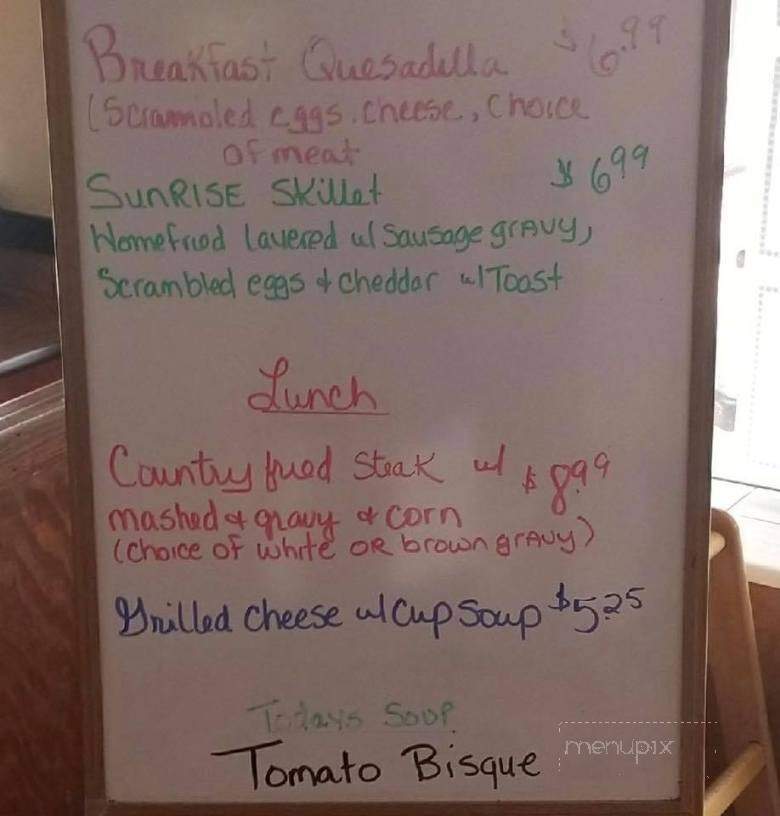 Breakfast Quesadilla $6.99
(Scrambled eggs, cheese, choice
of meat
SunRISE Skillet $6.99
Homefried Layered w/ Sausage grAVy,
Scrambled eggs & cheddar w/ Toast
Lunch
Country fried Steak w/ $8.99
mashed & gravy & corn
(choice of white OR brown grAVy)
Grilled cheese w/ Cup Soup $5.25
Todays Soup
Tomato Bisque
menupix